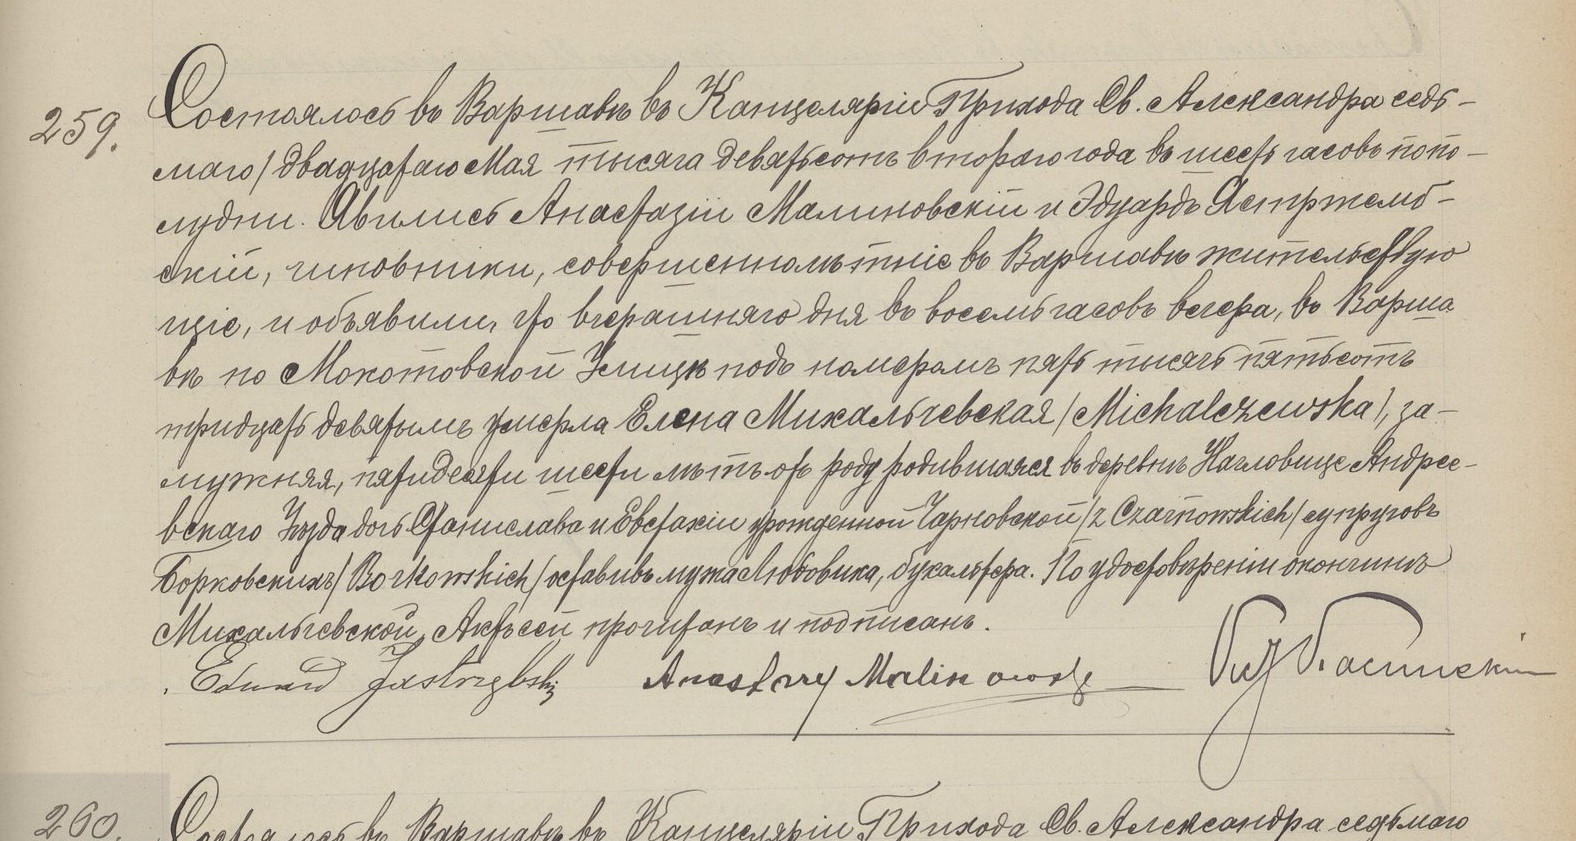 259.
Состоялось въ Варшавѣ въ Канцеляріи Прихода Св. Александра седь-
маго/двадцатаго Мая тысяча девятьсотъ втораго года въ шесть часовъ попо-
лудни. Явились Анастазій Малиновскій и Эдуардъ Ястржемб-
скій, чиновники, совершеннолѣтніе въ Варшавѣ жительствую
щіе, и объявили, что вчерашняго дня въ восемь часовъ вечера, въ Варша
вѣ по Мокотовской Улицѣ подъ номеромъ пять тысячъ пятьсотъ
тридцать девятымъ умерла Елена Михальчевская /Michalczewska/, за-
мужняя, пятидесяти шести лѣтъ отъ роду родившаяся въ деревнѣ Нагловице Андрее-
вскаго Уѣзда дочь Станислава и Евстахіи урожденной Чарновской /z Czarnowskich/ супруговъ
Борковскихъ /Borkowskich/ оставивъ мужа Людовика, бухалтера. По удостовѣреніи окончины
Михальчевской, Актъ сей прочитанъ и подписанъ.
Edward Jastrzębski Anastazy Malinowski
260.
Состоялось въ Варшавѣ въ Канцеляріи Прихода Св. Александра седьмаго